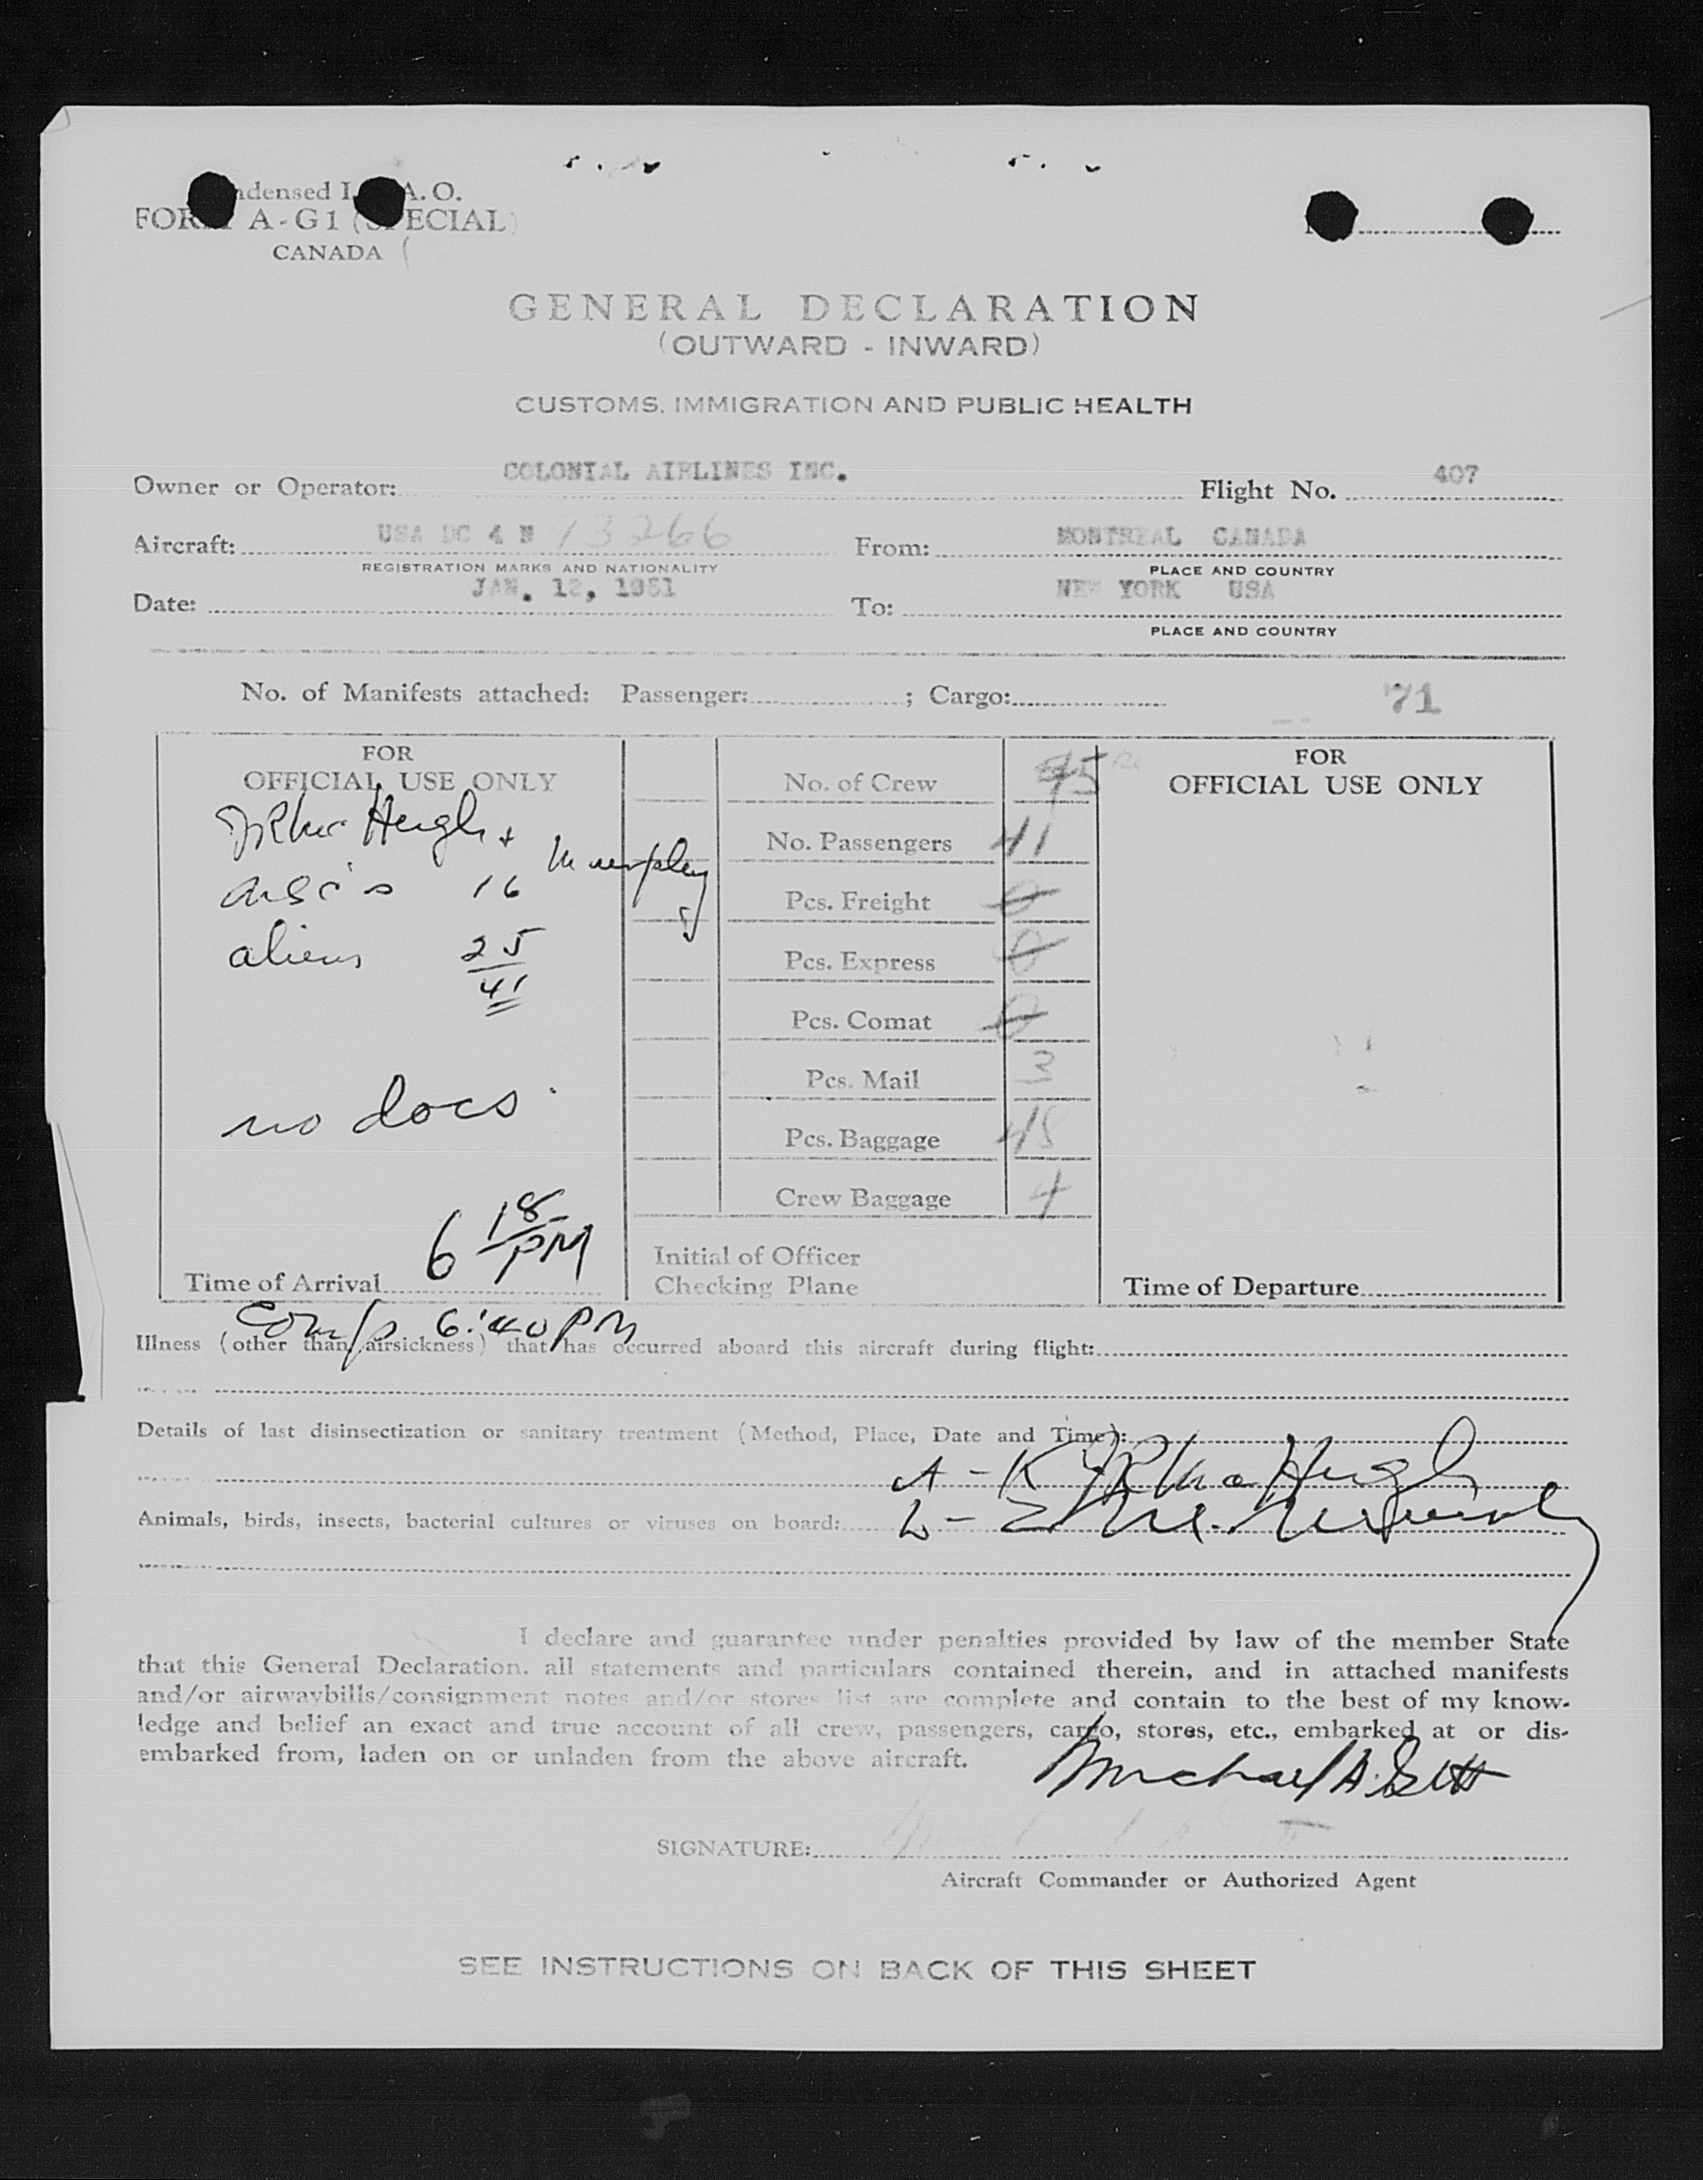 Condensed I.C.A.O.
FORM A-G1 (SPECIAL)
CANADA
GENERAL DECLARATION
(OUTWARD - INWARD)
CUSTOMS, IMMIGRATION AND PUBLIC HEALTH
Owner or Operator: COLONIAL AIRLINES INC. Flight No. 407
Aircraft: USA DC 4 N 73266 From: MONTREAL CANADA
REGISTRATION MARKS AND NATIONALITY PLACE AND COUNTRY
Date: JAN. 12, 1951 To: NEW YORK USA
PLACE AND COUNTRY
No. of Manifests attached: Passenger: ; Cargo: 71
FOR
OFFICIAL USE ONLY
Murphy
16
aliens 25
41
no docs.
6 18 PM
Time of Arrival
No. of Crew 5
No. Passengers 41
Pcs. Freight 0
Pcs. Express 0
Pcs. Comat 0
Pcs. Mail 3
Pcs. Baggage 48
Crew Baggage 4
Initial of Officer
Checking Plane
FOR
OFFICIAL USE ONLY
Time of Departure
Comp 6:40 PM
Illness (other than airsickness) that has occurred aboard this aircraft during flight:
Details of last disinsectization or sanitary treatment (Method, Place, Date and Time):
A - K
Animals, birds, insects, bacterial cultures or viruses on board:
I declare and guarantee under penalties provided by law of the member State
that this General Declaration, all statements and particulars contained therein, and in attached manifests
and/or airwaybills/consignment notes and/or stores list are complete and contain to the best of my know-
ledge and belief an exact and true account of all crew, passengers, cargo, stores, etc., embarked at or dis-
embarked from, laden on or unladen from the above aircraft.
Michael A.
SIGNATURE:
Aircraft Commander or Authorized Agent
SEE INSTRUCTIONS ON BACK OF THIS SHEET